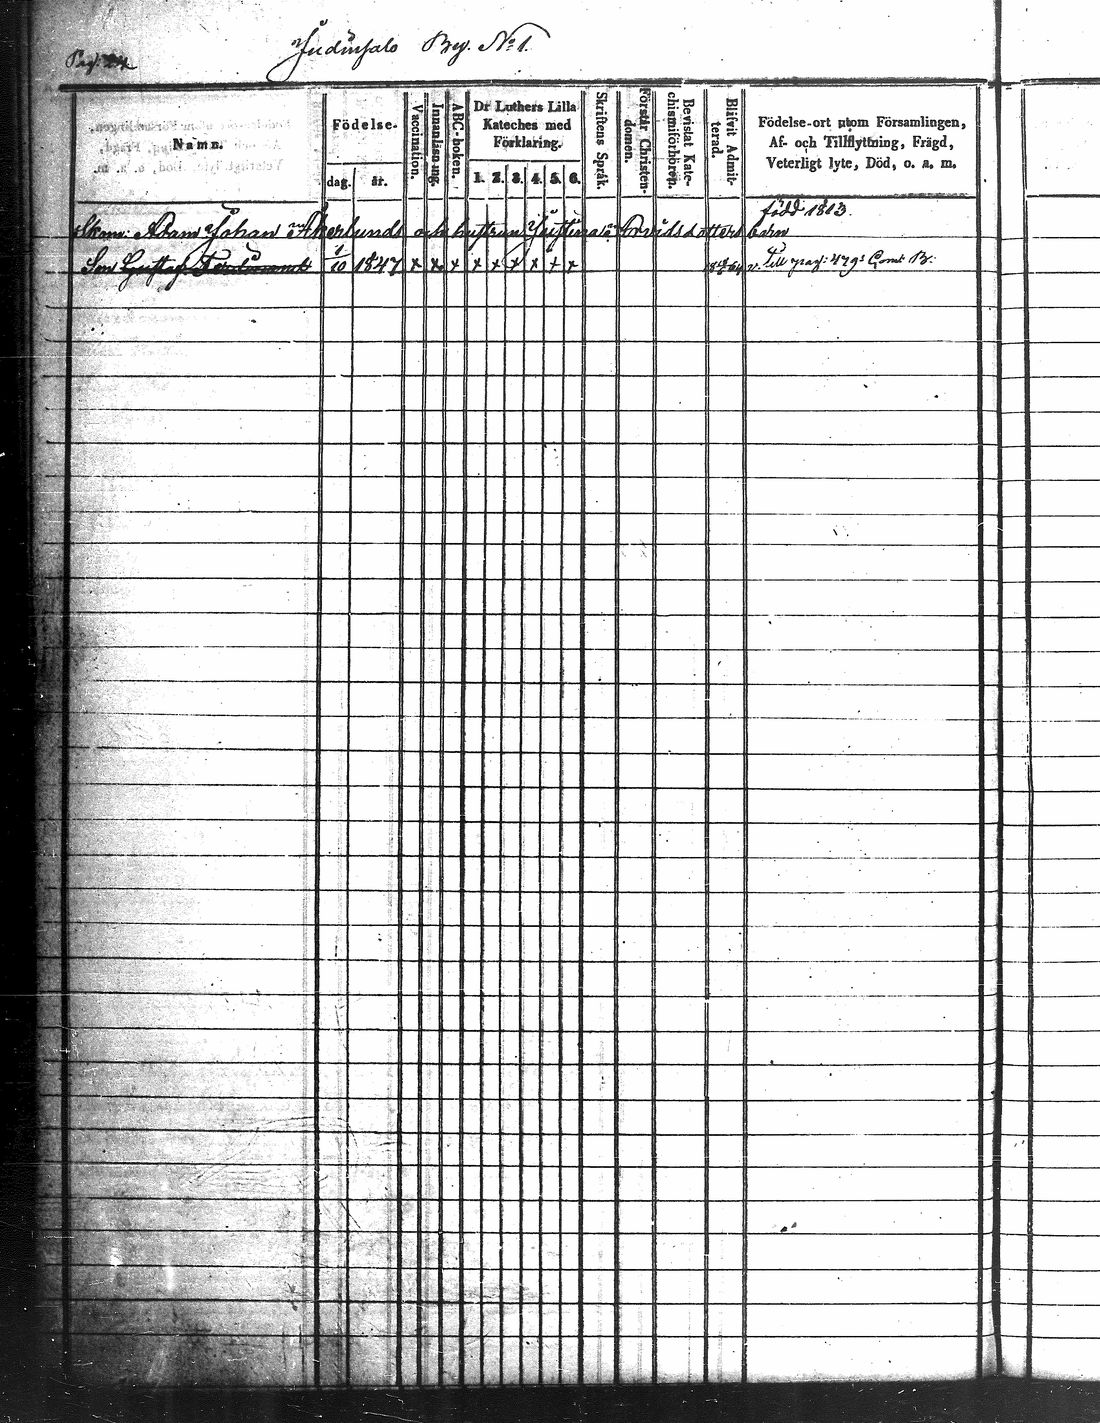 Pag.
Judinsalo Beg. No 1.
Namn.
Födelse-
dag.
år.
Vaccination.
Innanläsning.
ABC-boken.
Dr Luthers Lilla
Kateches med
Förklaring.
1. 2. 3. 4. 5. 6.
Skriftens Språk.
Förstår Christen-
domen.
Bevistat Kate-
chismiförhören.
Blifvit Admit-
terad.
Födelse-ort utom Församlingen,
Af- och Tillflyttning, Frägd,
Veterligt lyte, Död, o. a. m.
född 1813.
Adam Johan Åkerlunds och hustrun Justina Arvidsdotters barn
Son Gustaf Ferdinand 1/10 1847 x x x x x x x x x Till pag: 479